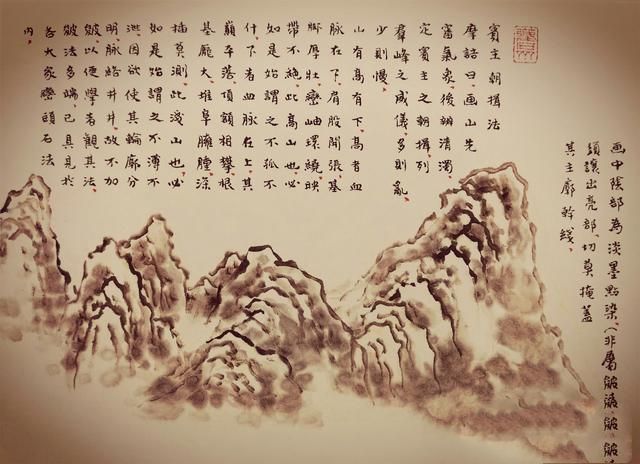 画中陰部為淡墨點染、(非屬皴
須讓出亮部、切莫掩蓋
其主廓幹綫、
賓主朝揖法
摩詰曰、画山先
審氣象、後辨清濁、
定賓主之朝揖、列
羣峰之威儀、多則亂
少則慢、
山有高有下、高者血
脉在下、肩股開張、基
脚厚壯、巒岫環繞、映
帶不絶、此高山也、必
如是始謂之不孤、不
什、下者血脉在上、其
巔半落、項領相攀、根
基龐大、堆阜臃腫、深
插莫測、此淺山也、必
如是始謂之不薄、不
泄、因欲使其輪廓分
明、脉絡井井、故不加
皴、以便學者觀其法、
皴法多端、已具見於
各大家巒頭石法
内、